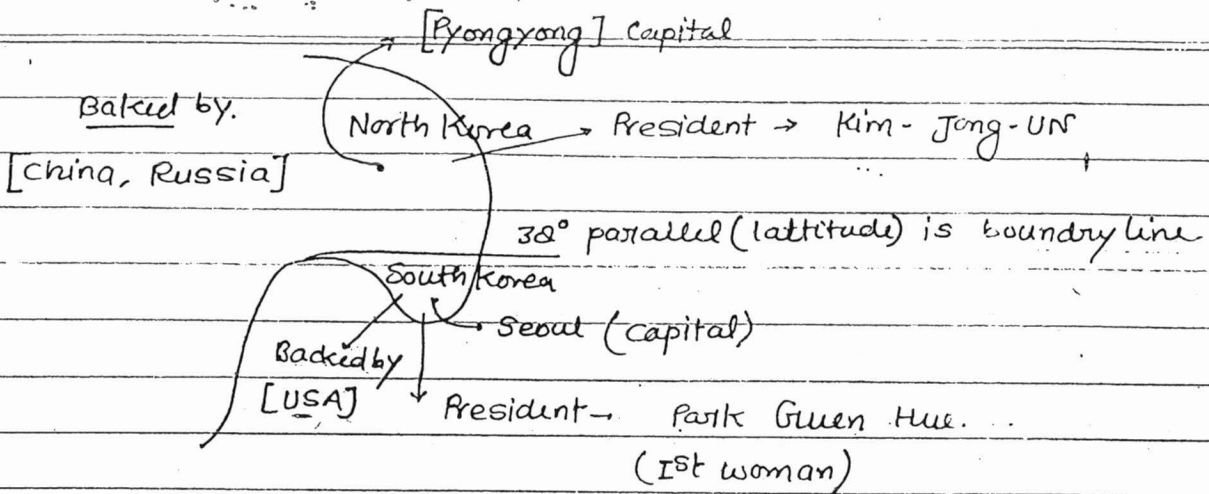 [Pyongyong] Capital
Baked by.
North Korea → President → Kim - Jong - UN
[China, Russia]
38° parallel (lattitude) is boundry line
South Korea
Seoul (capital)
Backed by
[USA]
President → Park Guen Hue...
(Ist woman)